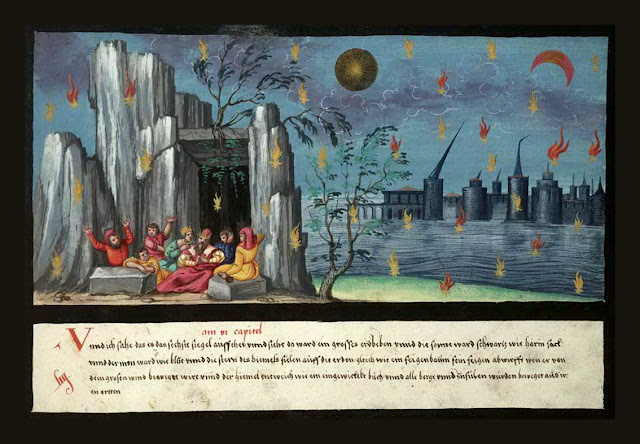 am vi capitel
Vnnd ich sahe das es das sechste sigel auffthet vnnd siehe da ward ein grosses erdbeben vnnd die sonne ward schwartz wie harin sack
vnnd der mon ward wie blüt vnnd die stern des himels fielen auff die erden gleich wie ein feigenbaum sein feigen abwerfft wen er von
dem grosen wind bewegt wirt vnnd der himel entweich wie ein eingewickelt büch vnnd alle berge vnnd insulen wurden beweget aus ir
en orten